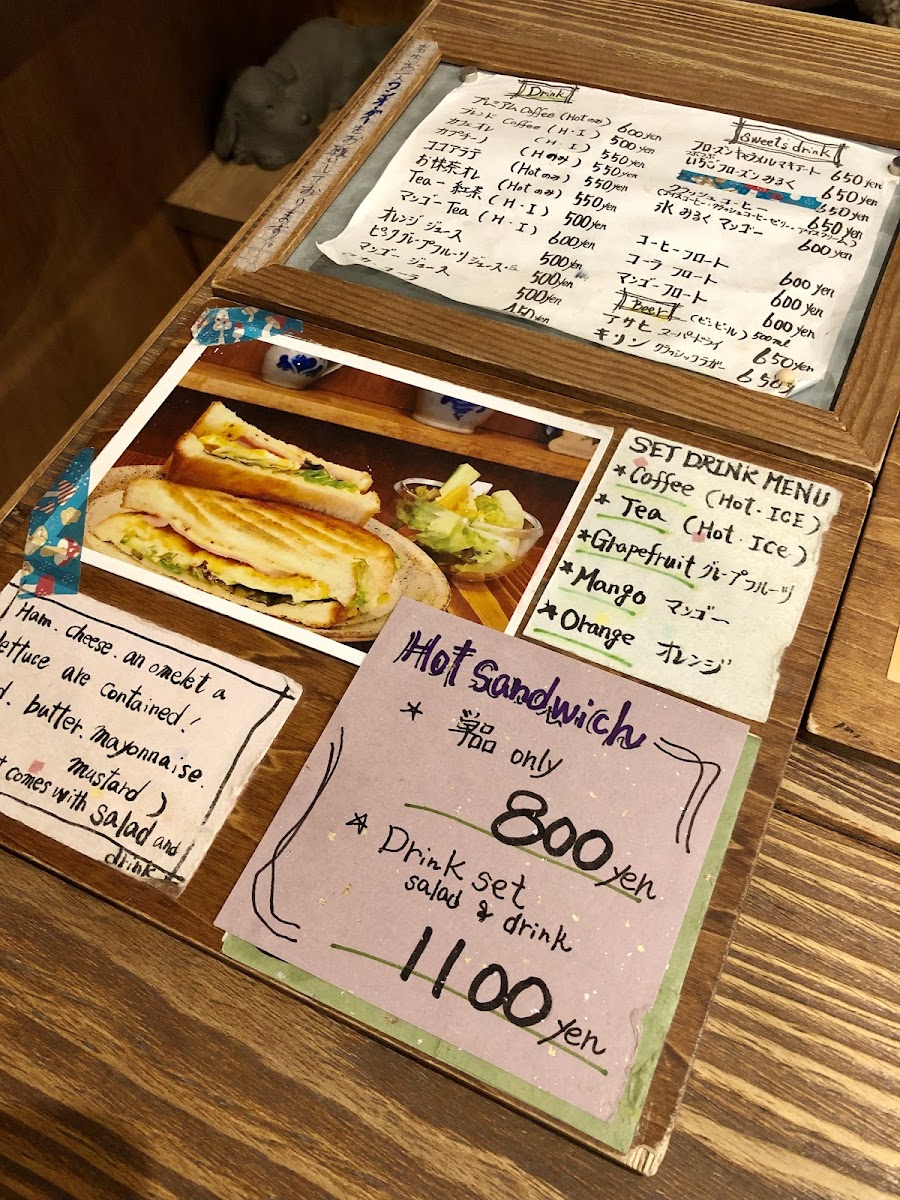 お一人さんワンオーダーをお願いしております。
Drink
プレミアム Coffee (Hotのみ) 600yen
ブレンド Coffee (H・I) 500yen
カフェオレ (H・I) 550yen
カプチーノ (Hのみ) 550yen
ココアラテ (Hotのみ) 550yen
お抹茶オレ (Hotのみ) 550yen
Tea- 紅茶 (H・I) 500yen
マンゴー Tea (H・I) 600yen
オレンジ ジュース 500yen
ピンクグレープフルーツジュース 500yen
マンゴー ジュース 500yen
450yen
Sweets drink
フローズンキャラメルマキアート 650yen
いちごフローズンみるく 650yen
650yen
クラッシュコーヒー 650yen
氷みるく マンゴー 600yen
コーヒーフロート 600yen
コーラ フロート 600yen
マンゴーフロート 600yen
Beer (ビンビール) 500ml
アサヒ スーパードライ 650yen
キリン クラシックラガー 650y
SET DRINK MENU
*Coffee (Hot・ICE)
*Tea (Hot・Ice)
*Grapefruit グレープフルーツ
*Mango マンゴー
*Orange オレンジ
Ham. cheese. an omeklt a
lettuce are contained!
d. butter. mayonnaise.
mustard)
t comes with salad and
drink
Hot sandwich
* 単品 only
800yen
☆ Drink set
salad & drink
1100yen